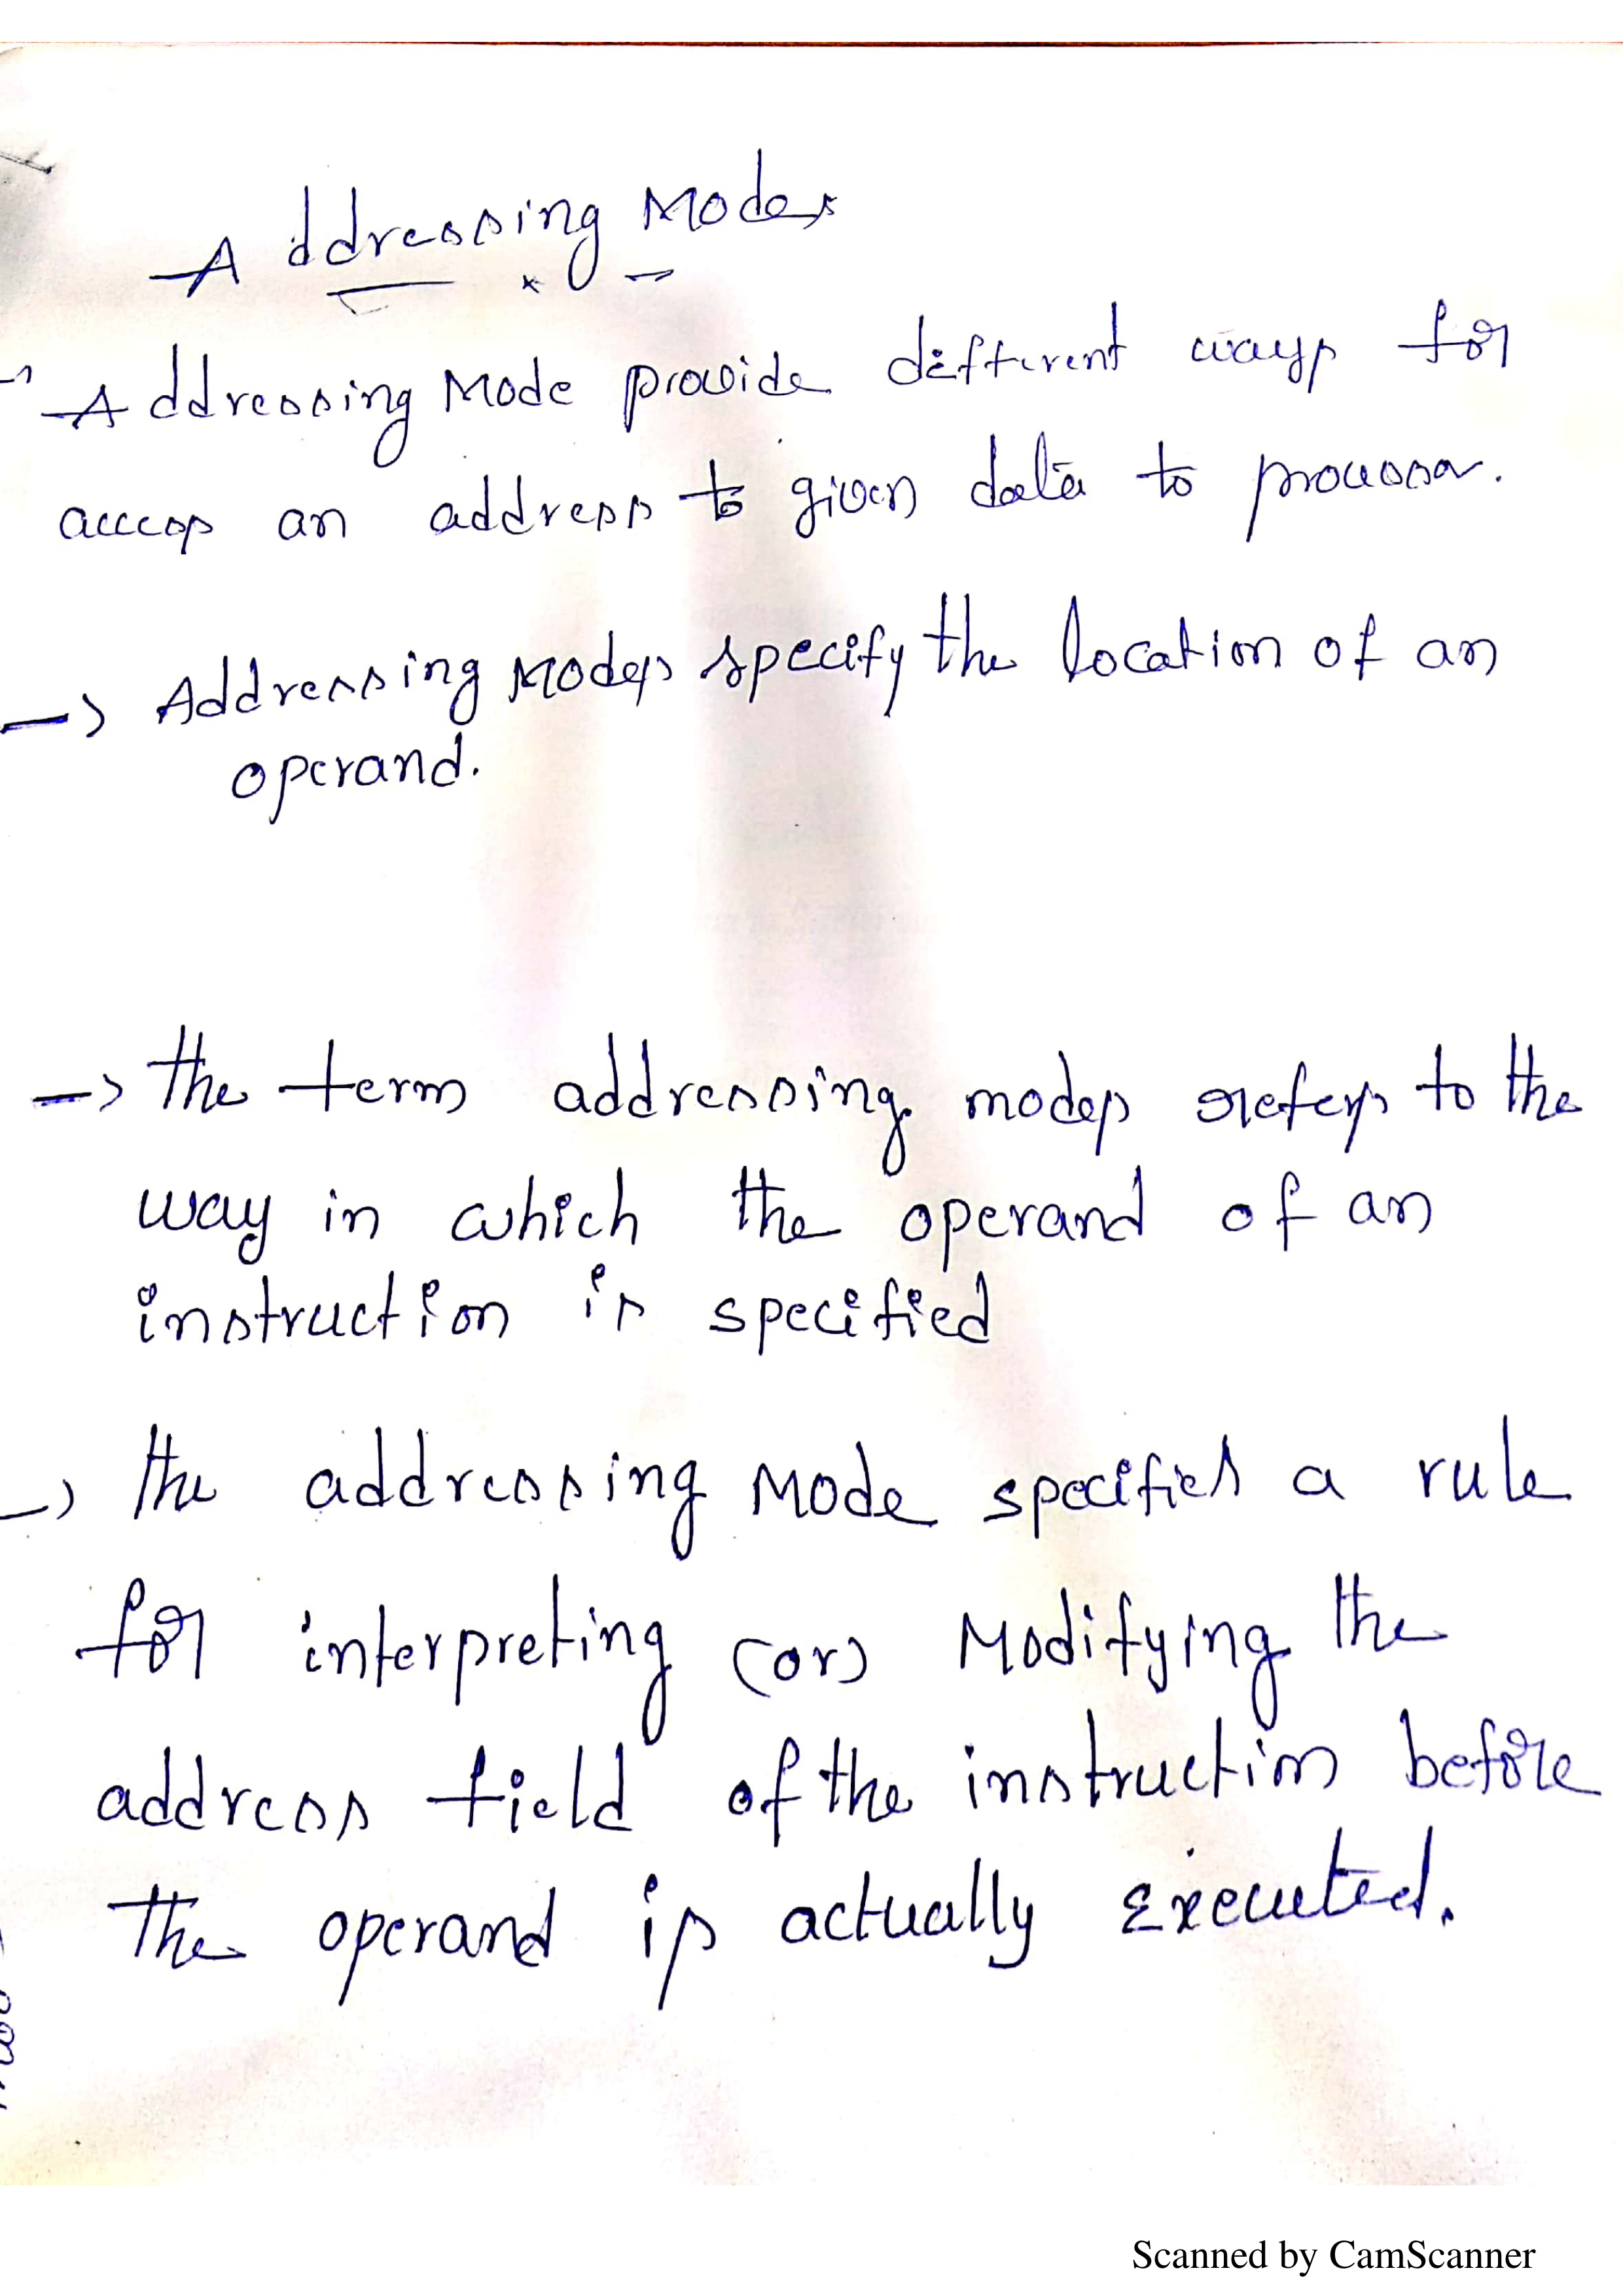 Addressing Modes
→ Addressing Mode provide different ways for
access an address to given data to processor.
→ Addressing Modes specify the location of an
operand.
→ The term addressing modes refers to the
way in which the operand of an
instruction is specified
→ The addressing Mode specifies a rule
for interpreting (or) Modifying the
address field of the instruction before
the operand is actually executed.
Scanned by CamScanner